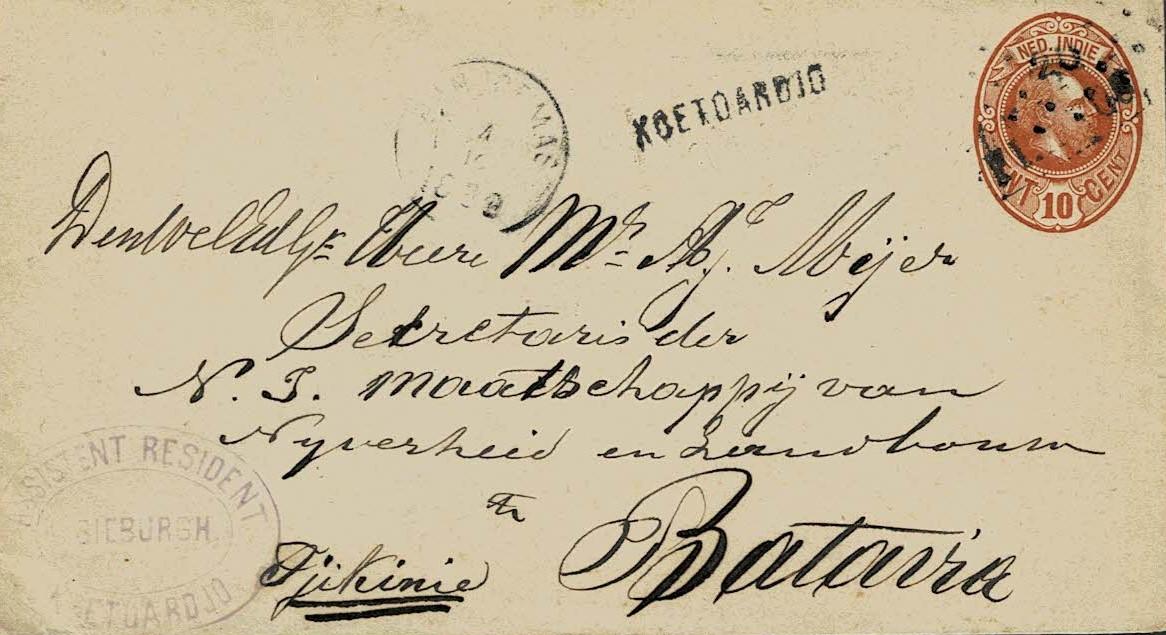 NED. INDIE
10 CENT
KOETOARDJO
DenWelEdlgs Heere Mr. A. J. Meijer
Secretaris der
N. I. Maatschappij van
Nyverheid en Landbouw
te
Batavia
Tjikinie
ASSISTENT RESIDENT
SIEBURGH
KOETOARDJO